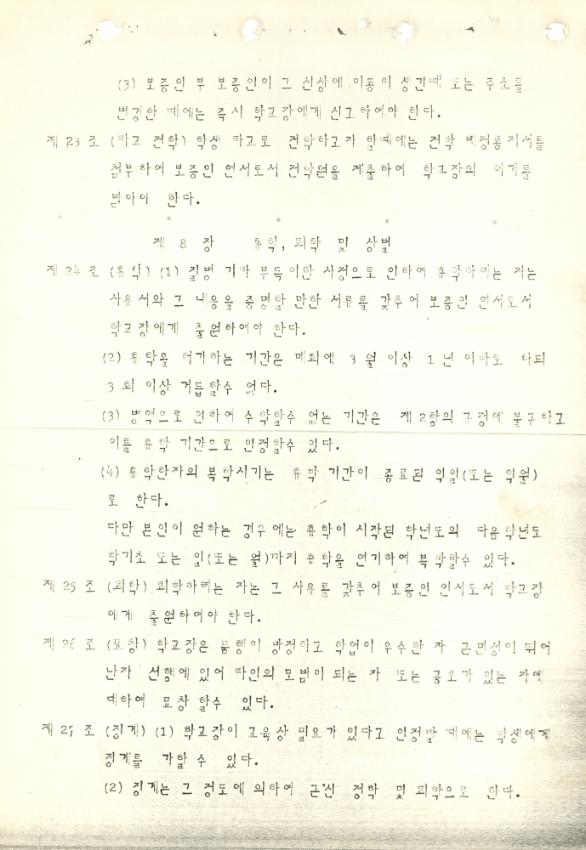 (3) 보증인 부 보증인이 그 신상에 이동이 생긴때 또는 주소를
변경한 때에는 즉시 학교장에게 신고하여야 한다.
제 23 조 (타교 전학) 학생 타교로 전학하고자 할때에는 전학 예정통지서를
첨부하여 보증인 연서로서 전학원을 제출하여 학교장의 허가를
받아야 한다.
제 8 장 휴학, 퇴학 및 상벌
제 24 조 (휴학) (1) 질병 기타 부득이한 사정으로 인하여 휴학하려는 자는
사유서와 그 내용을 증명할 만한 서류를 갖추어 보증인 연서로서
학교장에게 출원하여야 한다.
(2) 휴학을 허가하는 기간은 매회에 3 월 이상 1 년 이하로 하되
3 회 이상 거듭할수 없다.
(3) 병역으로 인하여 수학할수 없는 기간은 제 2항의 규정에 불구하고
이를 휴학 기간으로 인정할수 있다.
(4) 휴학한자의 복학시기는 휴학 기간이 종료된 익일(또는 익월)
로 한다.
다만 본인이 원하는 경우에는 휴학이 시작된 학년도의 다음학년도
학기초 또는 일(또는 월)까지 휴학을 연기하여 복학할수 있다.
제 25 조 (퇴학) 퇴학하려는 자는 그 사유를 갖추어 보증인 연서로서 학교장
에게 출원하여야 한다.
제 26 조 (표창) 학교장은 품행이 방정하고 학업이 우수한 자 근면성이 뛰어
난자 선행에 있어 타인의 모범이 되는 자 또는 공로가 있는 자에
대하여 표창 할수 있다.
제 27 조 (징계) (1) 학교장이 교육상 필요가 있다고 인정할 때에는 학생에게
징계를 가할수 있다.
(2) 징계는 그 정도에 의하여 근신 정학 및 퇴학으로 한다.